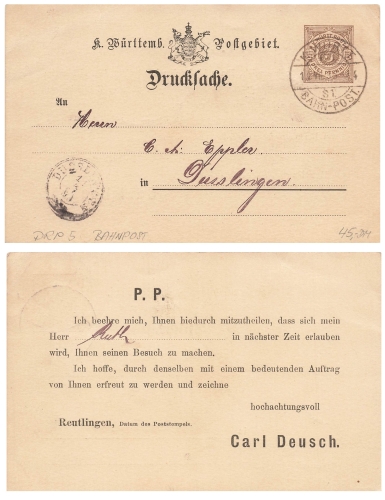 K. Württemb. Postgebiet.
Drucksache.
An
Herrn
Eppler
in Dusslingen.
BAHN-POST.
DRP 5 BAHNPOST
45,-
P. P.
Ich beehre mich, Ihnen hiedurch mitzutheilen, dass sich mein
Herr Ruth in nächster Zeit erlauben
wird, Ihnen seinen Besuch zu machen.
Ich hoffe, durch denselben mit einem bedeutenden Auftrag
von Ihnen erfreut zu werden und zeichne
hochachtungsvoll
Reutlingen, Datum des Poststempels.
Carl Deusch.